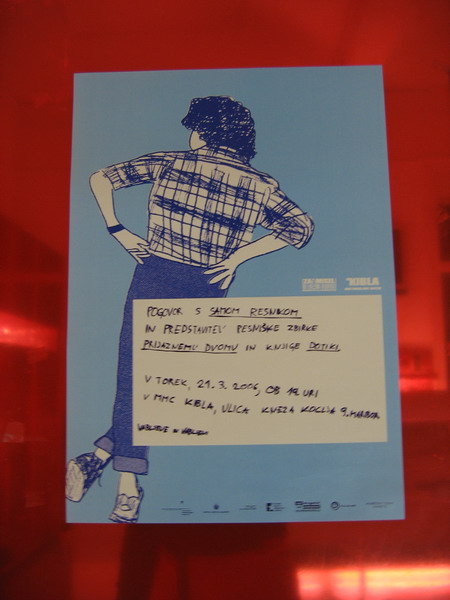 KIBLA
POGOVOR S SAMOM RESNIKOM
IN PREDSTAVITEV PESNIŠKE ZBIRKE
PRIJAZNEMU DVOMU IN KNJIGE DOTIKI.
V TOREK, 21. 3. 2006, OB 19. URI
V MMC KIBLA, ULICA KNEZA KOCLJA 9, MARIBOR
VABLJENE IN VABLJENI